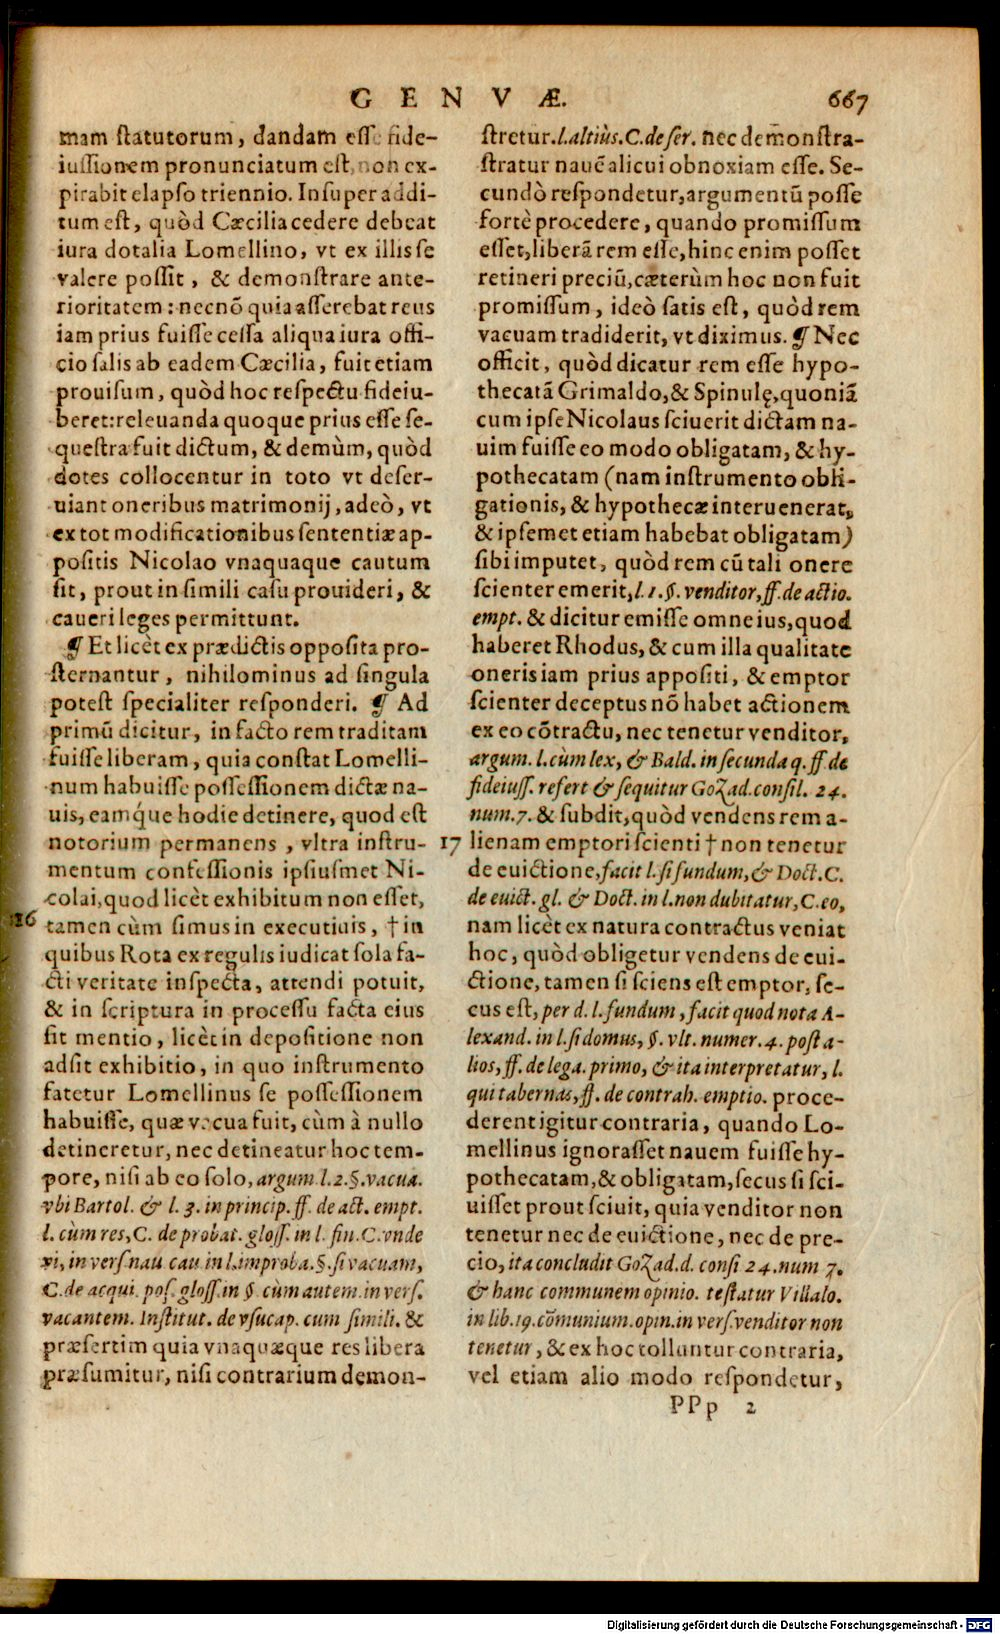 GENVÆ.
667
mam ſtatutorum, dandam eſſe fide-
iuſſionem pronunciatum eſt, non ex-
pirabit elapſo triennio. Inſuper addi-
tum eſt, quòd Cæcilia cedere debeat
iura dotalia Lomellino, vt ex illis ſe
valere poſſit, & demonſtrare ante-
rioritatem: necnõ quia aſſerebat reus
iam prius fuiſſe ceſſa aliqua iura offi-
cio ſalis ab eadem Cæcilia, fuit etiam
prouiſum, quòd hoc reſpectu fideiu-
beret: releuanda quoque prius eſſe ſe-
queſtra fuit dictum, & demùm, quòd
dotes collocentur in toto vt deſer-
uiant oneribus matrimonij, adeò, vt
ex tot modificationibus ſententiæ ap-
poſitis Nicolao vnaquaque cautum
ſit, prout in ſimili caſu prouideri, &
caueri leges permittunt.
¶ Et licèt ex prædictis oppoſita pro-
ſternantur, nihilominus ad ſingula
poteſt ſpecialiter reſponderi. ¶ Ad
primũ dicitur, in facto rem traditam
fuiſſe liberam, quia conſtat Lomelli-
num habuiſſe poſſeſſionem dictæ na-
uis, eamq́ue hodie detinere, quod eſt
notorium permanens, vltra inſtru-
mentum confeſſionis ipſiuſmet Ni-
colai, quod licèt exhibitum non eſſet,
16 tamen cùm ſimus in executiuis, † in
quibus Rota ex regulis iudicat ſola fa-
cti veritate inſpecta, attendi potuit,
& in ſcriptura in proceſſu facta eius
ſit mentio, licèt in depoſitione non
adſit exhibitio, in quo inſtrumento
fatetur Lomellinus ſe poſſeſſionem
habuiſſe, quæ vacua fuit, cùm à nullo
detineretur, nec detineatur hoc tem-
pore, niſi ab eo ſolo, argum. l. 2. §. vacua.
vbi Bartol. & l. 3. in princip. ff. de act. empt.
l. cùm res, C. de probat. gloſſ. in l. fin. C. vnde
vi, in verſ. nau. cau in l. improba. §. ſi vacuam,
C. de acqui. poſ. gloſſ. in §. cùm autem. in verſ.
vacantem. Inſtitut. de vſucap. cum ſimili. &
præſertim quia vnaquæque res libera
præſumitur, niſi contrarium demon-
ſtretur. l. altiùs. C. de ſer. nec demonſtra-
ſtratur nauẽ alicui obnoxiam eſſe. Se-
cundò reſpondetur, argumentũ poſſe
fortè procedere, quando promiſſum
eſſet, liberã rem eſſe, hinc enim poſſet
retineri preciũ, cæterùm hoc non fuit
promiſſum, ideò ſatis eſt, quòd rem
vacuam tradiderit, vt diximus. ¶ Nec
officit, quòd dicatur rem eſſe hypo-
thecatã Grimaldo, & Spinulę, quoniã
cum ipſe Nicolaus ſciuerit dictam na-
uim fuiſſe eo modo obligatam, & hy-
pothecatam (nam inſtrumento obli-
gationis, & hypothecæ interuenerat,
& ipſemet etiam habebat obligatam)
ſibi imputet, quòd rem cũ tali onere
ſcienter emerit, l. 1. §. venditor, ff. de actio.
empt. & dicitur emiſſe omne ius, quod
haberet Rhodus, & cum illa qualitate
oneris iam prius appoſiti, & emptor
ſcienter deceptus nõ habet actionem
ex eo cõtractu, nec tenetur venditor,
argum. l. cùm lex, & Bald. in ſecunda q. ff. de
fideiuſſ. refert & ſequitur Gozad. conſil. 24.
num. 7. & ſubdit, quòd vendens rem a-
17 lienam emptori ſcienti † non tenetur
de euictione, facit l. ſi fundum, & Doct. C.
de euict. gl. & Doct. in l. non dubitatur, C. eo,
nam licèt ex natura contractus veniat
hoc, quòd obligetur vendens de eui-
ctione, tamen ſi ſciens eſt emptor, ſe-
cus eſt, per d. l. fundum, facit quod nota A-
lexand. in l. ſi domus, §. vlt. numer. 4. poſt a-
lios, ff. de lega. primo, & ita interpretatur, l.
qui tabernas, ff. de contrah. emptio. proce-
derent igitur contraria, quando Lo-
mellinus ignoraſſet nauem fuiſſe hy-
pothecatam, & obligatam, ſecus ſi ſci-
uiſſet prout ſciuit, quia venditor non
tenetur nec de euictione, nec de pre-
cio, ita concludit Gozad. d. conſi 24. num 7.
& hanc communem opinio. teſtatur Villalo.
in lib. 19. cõmunium. opin. in verſ. venditor non
tenetur, & ex hoc tolluntur contraria,
vel etiam alio modo reſpondetur,
PPp 2
Digitalisierung gefördert durch die Deutsche Forschungsgemeinschaft - DFG